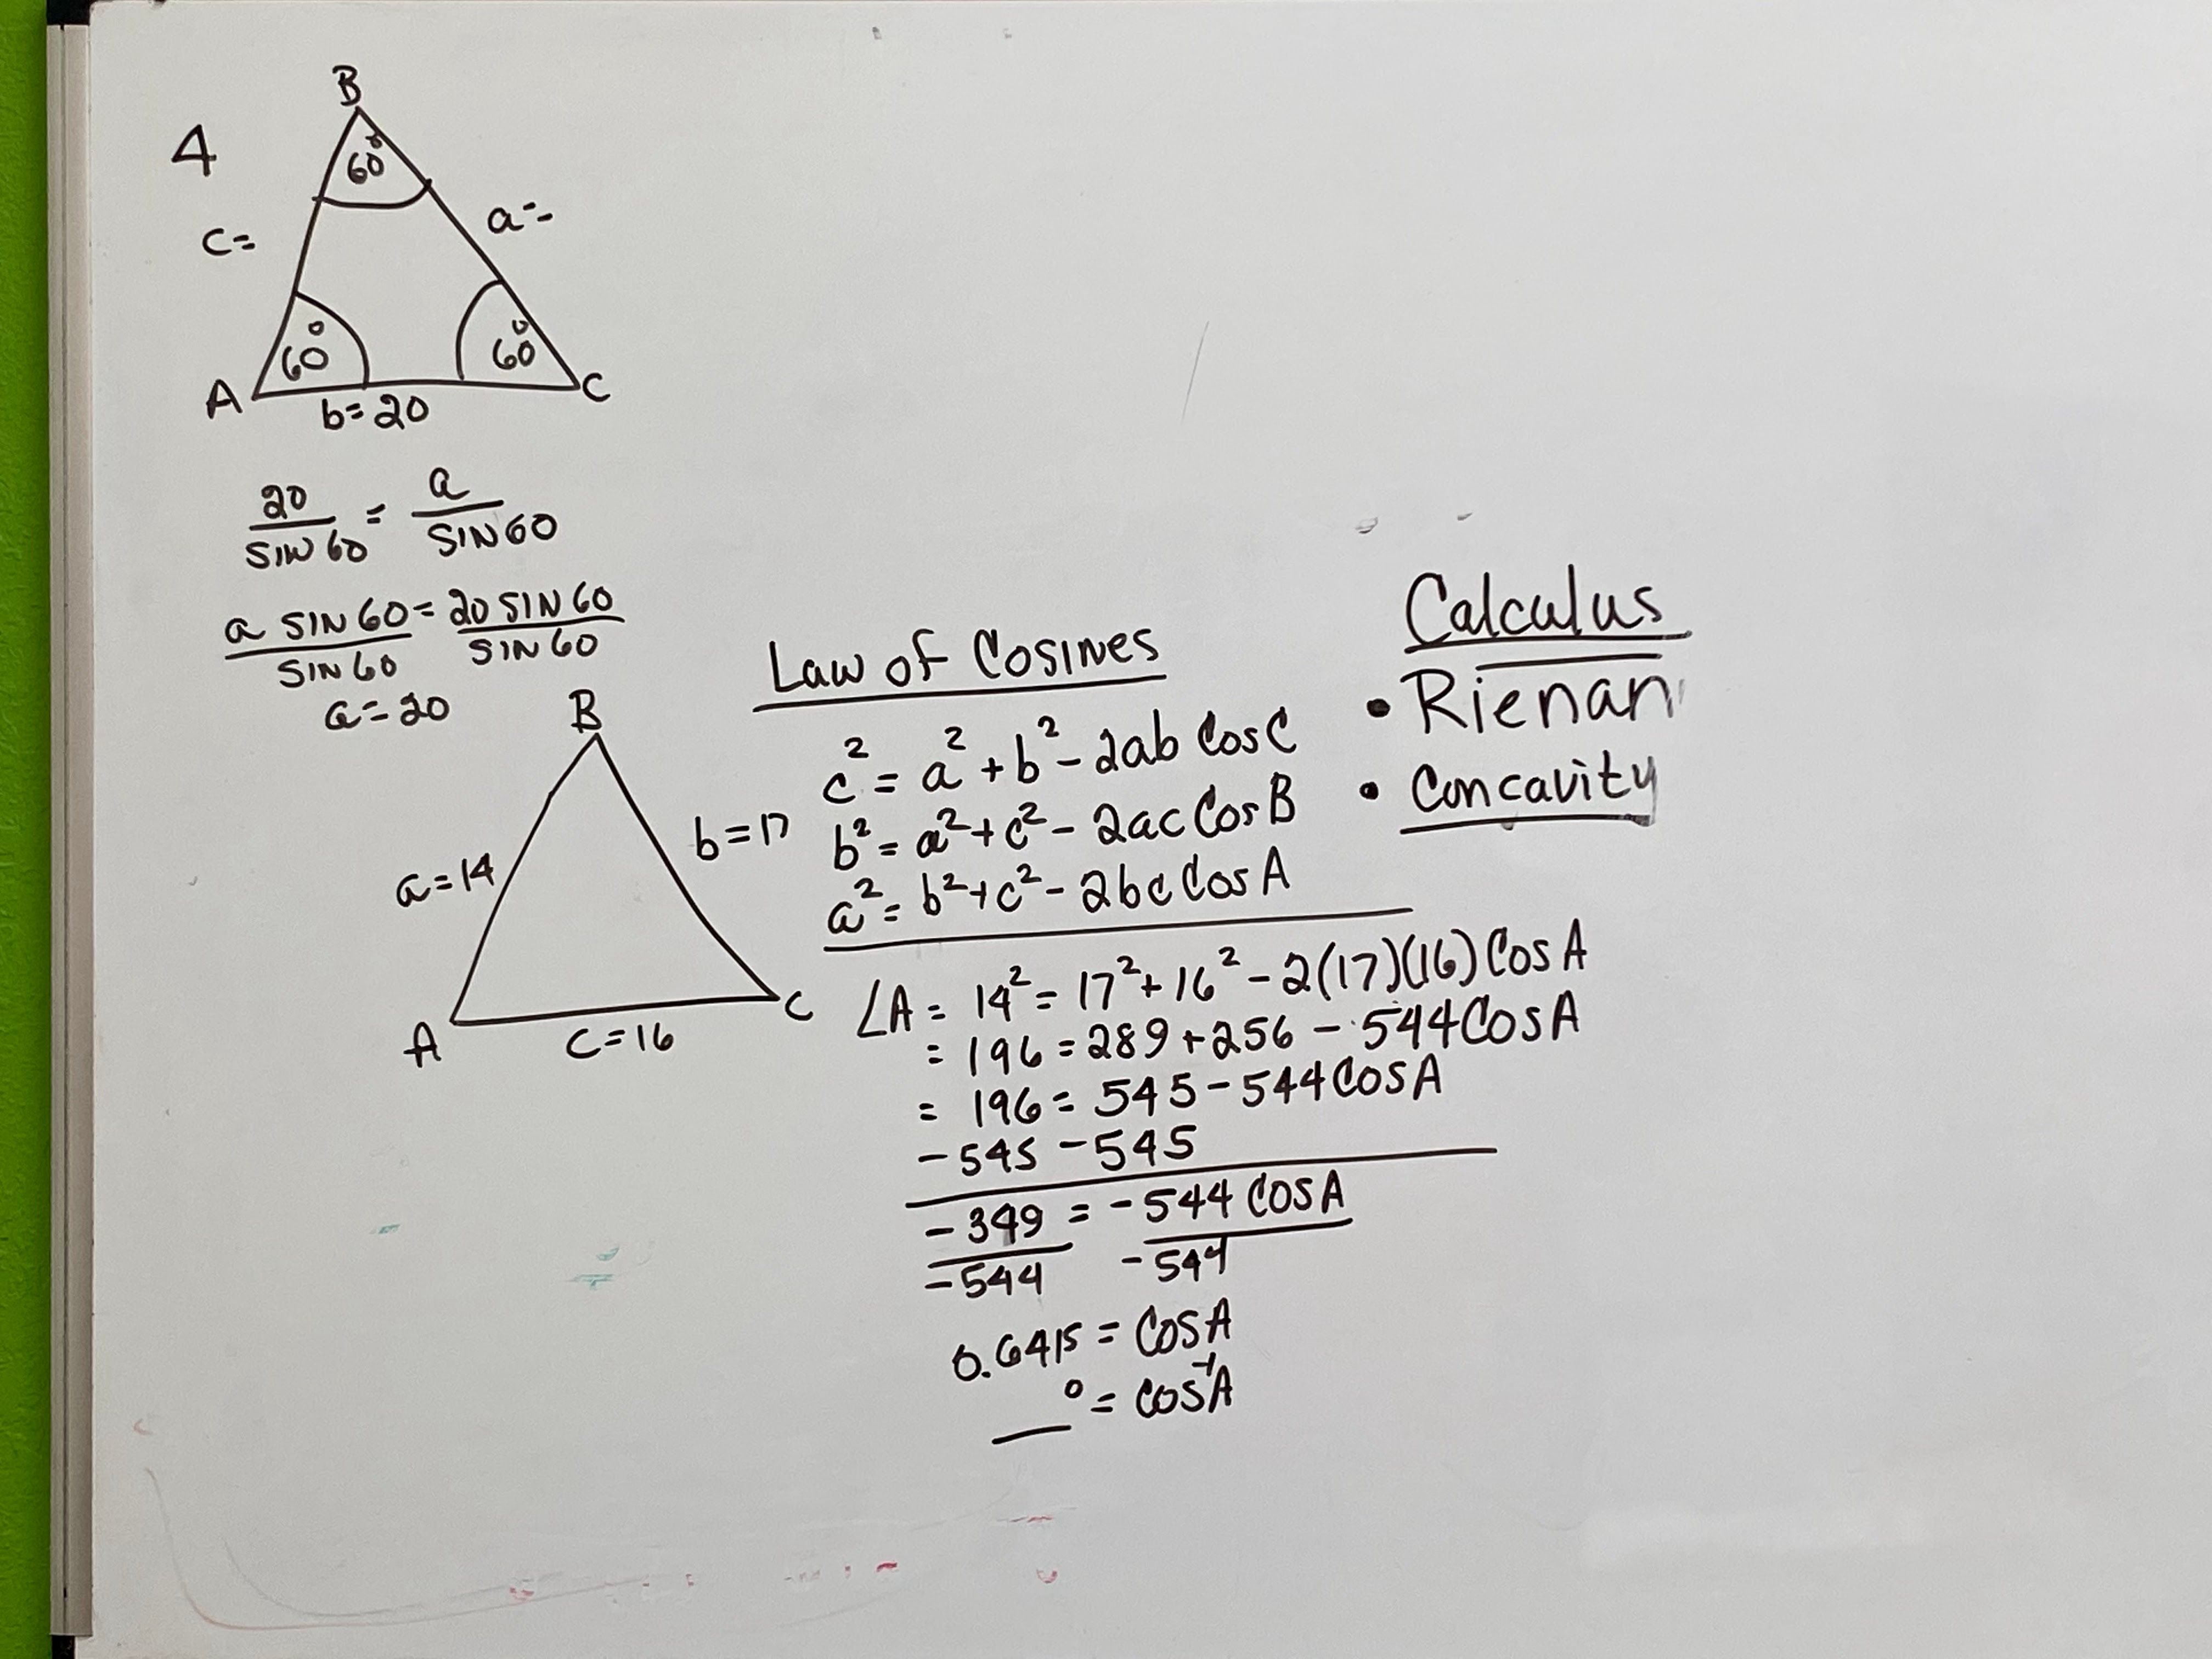 4
B
60°
c=
a=
60°
60°
A
C
b=20
20/SIN 60 = a/SIN 60
a SIN 60/SIN 60 = 20 SIN 60/SIN 60
a=20
B
a=14
b=17
A
C
c=16
Law of Cosines
c² = a² + b² - 2ab Cos C
b² = a² + c² - 2ac Cos B
a² = b² + c² - 2bc Cos A
∠A = 14² = 17² + 16² - 2(17)(16) Cos A
= 196 = 289 + 256 - 544 Cos A
= 196 = 545 - 544 Cos A
-545 -545
-349 = -544 Cos A
-544 -544
0.6415 = Cos A
__° = Cos⁻¹A
Calculus
• Rienan
• Concavity